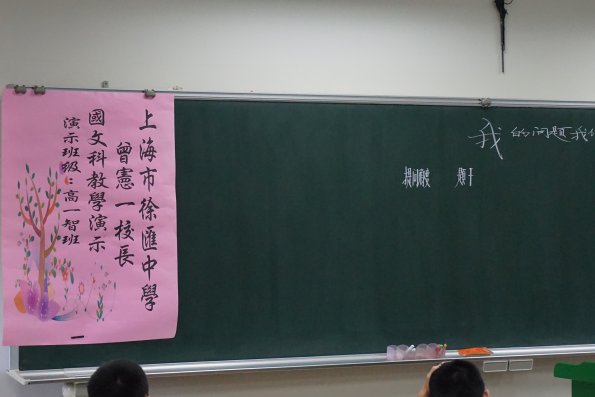 上海市徐匯中學
曾憲一校長
國文科教學演示
演示班級：高一智班
我的問題我